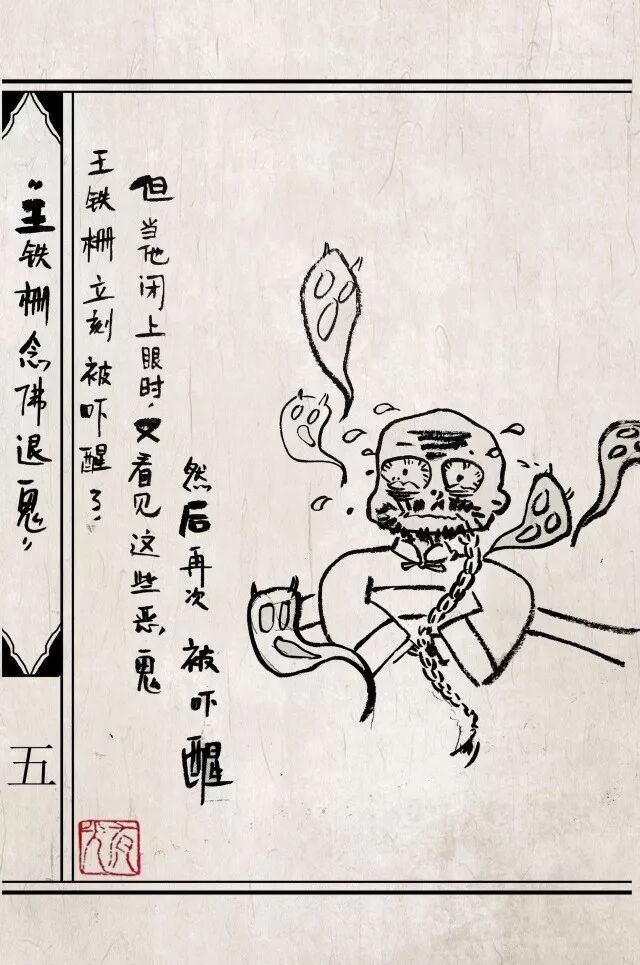 “王铁栅念佛退鬼”
五
王铁栅立刻被吓醒了.
但当他闭上眼时,又看见这些恶鬼
然后再次被吓醒